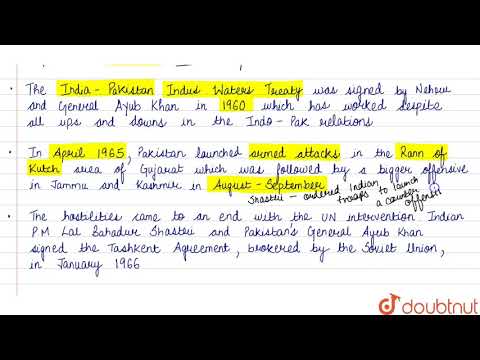 The India - Pakistan Indus Waters Treaty was signed by Nehru
and General Ayub Khan in 1960 which has worked despite
all ups and downs in the Indo - Pak relations
In April 1965, Pakistan launched armed attacks in the Rann of
Kutch area of Gujarat which was followed by a bigger offensive
in Jammu and Kashmir in August - September
Shastri - ordered Indian
troops to launch
a counter
offensive
The hostilities came to an end with the UN intervention. Indian
PM Lal Bahadur Shastri and Pakistan's General Ayub Khan
signed the Tashkent Agreement, brokered by the Soviet Union,
in January 1966
doubtnut